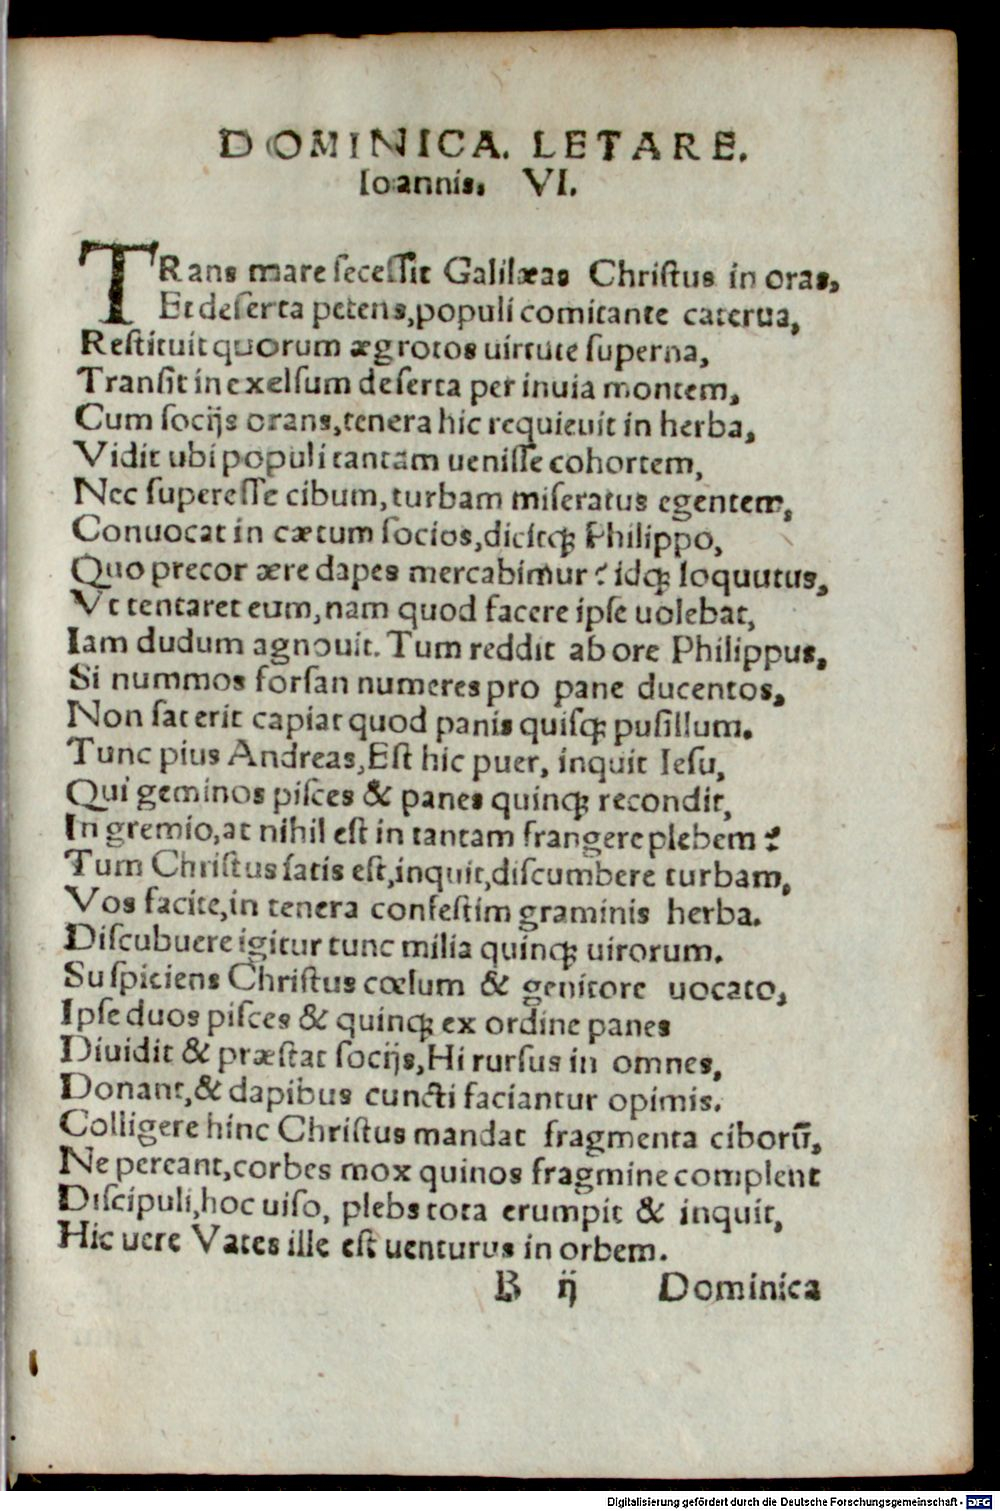 DOMINICA. LETARE.
Ioannis. VI.
TRans mare ſeceſſit Galilæas Chriſtus in oras,
Et deſerta petens, populi comitante caterua,
Reſtituit quorum ægrotos uirtute ſuperna,
Tranſit in exelſum deſerta per inuia montem,
Cum ſocijs orans, tenera hic requieuit in herba,
Vidit ubi populi tantam ueniſſe cohortem,
Nec ſupereſſe cibum, turbam miſeratus egentem,
Conuocat in cætum ſocios, dicitqꝫ Philippo,
Quo precor ære dapes mercabimur? idqꝫ loquutus,
Vt tentaret eum, nam quod facere ipſe uolebat,
Iam dudum agnouit. Tum reddit ab ore Philippus,
Si nummos forſan numeres pro pane ducentos,
Non ſat erit capiat quod panis quiſqꝫ puſillum.
Tunc pius Andreas, Eſt hic puer, inquit Ieſu,
Qui geminos piſces & panes quinqꝫ recondit,
In gremio, at nihil eſt in tantam frangere plebem?
Tum Chriſtus ſatis eſt, inquit, diſcumbere turbam,
Vos facite, in tenera confeſtim graminis herba.
Diſcubuere igitur tunc milia quinqꝫ uirorum.
Suſpiciens Chriſtus cœlum & genitore uocato,
Ipſe duos piſces & quinqꝫ ex ordine panes
Diuidit & præſtat ſocijs, Hi rurſus in omnes,
Donant, & dapibus cuncti faciantur opimis.
Colligere hinc Chriſtus mandat fragmenta ciborū,
Ne pereant, corbes mox quinos fragmine complent
Diſcipuli, hoc uiſo, plebs tota erumpit & inquit,
Hic uere Vates ille eſt uenturus in orbem.
B ij Dominica
Digitalisierung gefördert durch die Deutsche Forschungsgemeinschaft - DFG